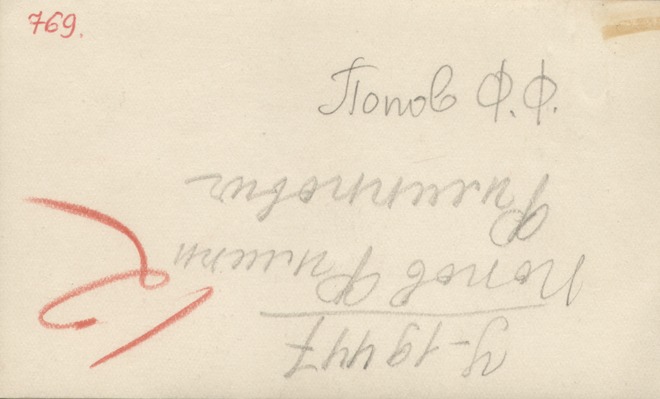 769.
Попов Ф.Ф.
У-19447
Попов Филипп
Филиппович